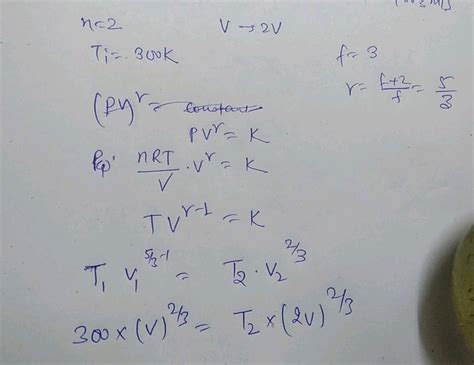 n=2    V → 2V
Ti = 300K    f = 3
r = (f+2)/f = 5/3
(PV)^r = constant
PV^r = K
nRT/V · V^r = K
TV^(r-1) = K
T₁ V₁^(5/3-1) = T₂ · V₂^(2/3)
300 × (V)^(2/3) = T₂ × (2V)^(2/3)